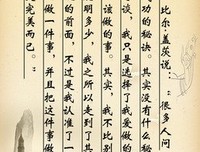 比尔盖茨说：很多人问
功的秘诀。其实没有什么秘
谈，我只是选择了我爱做的
该做的事。其实，我不比别
明多少，我之所以走到了其
的前面，不过是我认准了一
做一件事，并且把这件事做
完美而已。